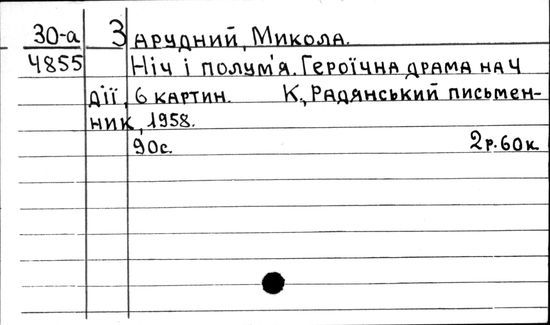 30-а Зарудний, Микола.
4855 Ніч і полум'я. Героїчна драма на 4
дії, 6 картин. К., Радянський письмен-
ник, 1958.
90с. 2р.60к